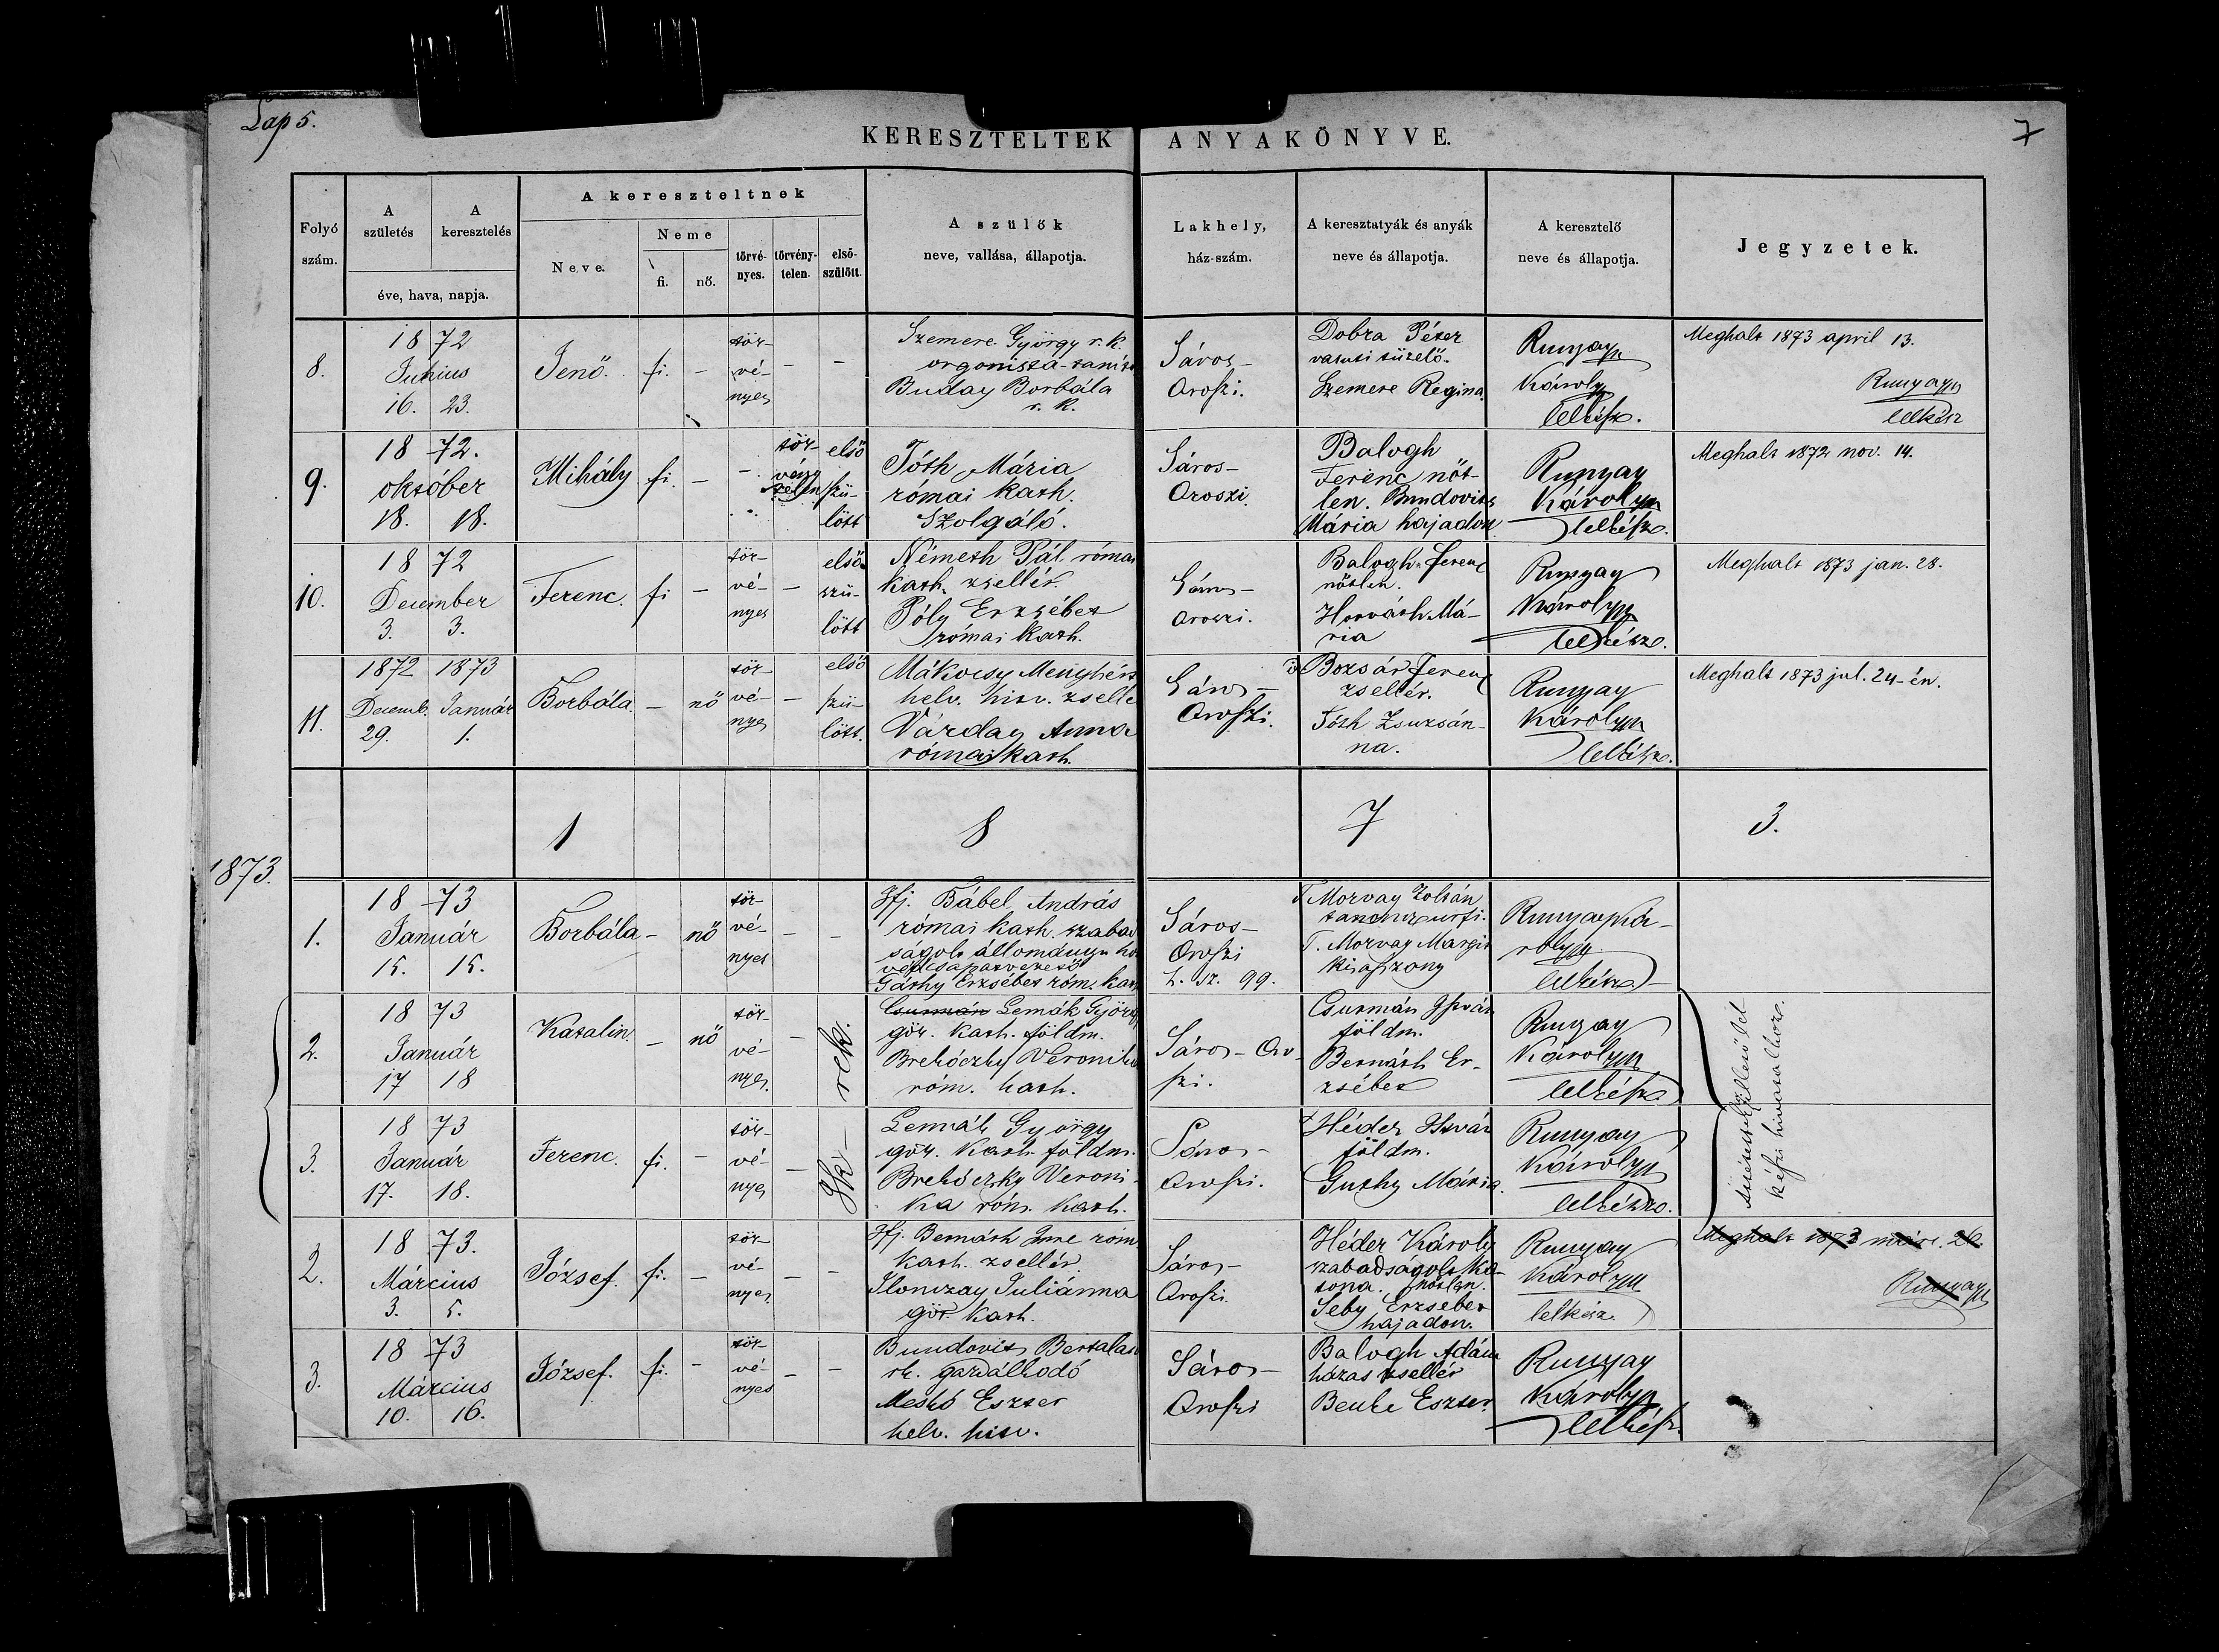 Lap 5.
7
KERESZTELTEK ANYAKÖNYVE.
Folyó szám.
A születés
A keresztelés
éve, hava, napja.
A kereszteltnek
Neve.
Neme
fi.
nő.
törvényes.
törvénytelen.
elsőszülött.
A szülők
neve, vallása, állapotja.
Lakhely,
ház-szám.
A keresztatyák és anyák
neve és állapotja.
A keresztelő
neve és állapotja.
Jegyzetek.
8.
1872
Junius
16. 23.
Jenő.
fi. -
tör-
vé-
nyes
- -
Szemere György r. k.
orgonista-tanító
Buday Borbála
r. k.
Sáros-
Oroszi.
Dobra Péter
vasuti fütelő.
Szemere Regina
Runyay
Károly
lelkész.
Meghalt 1873 april 13.
Runyay
lelkész
9.
1872.
október
18. 18.
Mihály
fi. - -
tör-
vény
telen
első
szü-
lött
Tóth Mária
római kath.
szolgáló.
Sáros-
Oroszi.
Balogh
Ferenc nőt-
len. Bundovits
Mária hajadon
Runyay
Károly
lelkész.
Meghalt 1872 nov. 14.
10.
1872
December
3. 3.
Ferenc.
fi -
tör-
vé-
nyes
-
első
szü-
lött
Németh Pál római
kath. zsellér.
Póly Erzsébet
római kath.
Sáros-
oroszi.
Balogh Ferenc
nőtlen.
Horváth Má-
ria
Runyay
Károly
lelkész.
Meghalt 1873 jan. 28.
11.
1872 1873
Decemb. Január
29. 1.
Borbála.
- nő
tör-
vé-
nyes
-
első
szü-
lött.
Mákocsy Menyhért
helv. hitv. zsellé
Várday Anna
római kath.
Sáros-
Oroszi.
Bozsár Ferenc
zsellér.
Tóth Zsuzsán-
na.
Runyay
Károly
lelkész.
Meghalt 1873 jul. 24-én.
1 8 7 3.
1873.
1.
1873
Január
15. 15.
Borbála
- nő
tör-
vé-
nyes
- -
Ifj. Bábel András
római kath. szabad
ságolt állományu hon
véd csapatvezető
Gáthy Erzsébet róm. kath
Sáros-
Oroszi
h. sz. 99.
T. Morvay Zoltán
tanonc urfi.
T. Morvay Margit
kisaszony
Runyay Ká-
roly
lelkész
2.
1873
Január
17 18
Katalin.
- nő
tör-
vé-
nyes.
-
Csurmán Lemák György
gör. kath. földm.
Brehóczky Veronika
róm. kath.
Sáros-Oro-
szi.
Csurmán István
földm.
Bernáth Er-
zsébet
Runyay
Károly
lelkész
3.
1873
Január
17. 18.
Ferenc.
fi. -
tör-
vé-
nyes
-
Iki-
rek.
Lemák György
gör. kath. földm.
Brehóczky Veroni-
ka róm. kath.
Sáros-
Oroszi.
Héder István
földm.
Guthy Mária.
Runyay
Károly
lelkész.
2.
1873.
Március
3. 5.
József.
fi. -
tör-
vé-
nyes
- -
Ifj. Bernáth Imre róm.
kath. zsellér.
Ilonczay Juliánna
gör. kath.
Sáros-
Oroszi.
Héder Károly
szabadságolt ka-
tona. nőtlen.
Seby Erzsébet
hajadon.
Runyay
Károly
lelkész.
Meghalt 1873 márc. 26.
Runyay
3.
1873
Március
10. 16.
József.
fi. -
tör-
vé-
nyes
- -
Bundovits Bertalan
rk. gazdálkodó
Meskó Eszter
helv. hitv.
Sáros-
Oroszi
Balogh Ádám
házas zsellér
Benke Eszter.
Runyay
Károly
lelkész